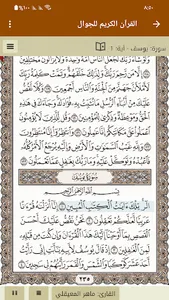 ٨:٥٠
القرآن الكريم للجوال
سورة: يوسف - آية: 1
وَلَوْ شَآءَ رَبُّكَ لَجَعَلَ ٱلنَّاسَ أُمَّةً وَٰحِدَةً وَلَا يَزَالُونَ مُخْتَلِفِينَ
إِلَّا مَن رَّحِمَ رَبُّكَ وَلِذَٰلِكَ خَلَقَهُمْ وَتَمَّتْ كَلِمَةُ رَبِّكَ لَأَمْلَأَنَّ
جَهَنَّمَ مِنَ ٱلْجِنَّةِ وَٱلنَّاسِ أَجْمَعِينَ وَكُلًّا نَّقُصُّ عَلَيْكَ مِنْ
أَنۢبَآءِ ٱلرُّسُلِ مَا نُثَبِّتُ بِهِۦ فُؤَادَكَ وَجَآءَكَ فِي هَٰذِهِ ٱلْحَقُّ
وَمَوْعِظَةٌ وَذِكْرَىٰ لِلْمُؤْمِنِينَ وَقُل لِّلَّذِينَ لَا يُؤْمِنُونَ ٱعْمَلُوا۟
عَلَىٰ مَكَانَتِكُمْ إِنَّا عَٰمِلُونَ وَٱنتَظِرُوٓا۟ إِنَّا مُنتَظِرُونَ وَلِلَّهِ
غَيْبُ ٱلسَّمَٰوَٰتِ وَٱلْأَرْضِ وَإِلَيْهِ يُرْجَعُ ٱلْأَمْرُ كُلُّهُۥ
فَٱعْبُدْهُ وَتَوَكَّلْ عَلَيْهِ وَمَا رَبُّكَ بِغَٰفِلٍ عَمَّا تَعْمَلُونَ
سُورَةُ يُوسُفَ
بِسْمِ ٱللَّهِ ٱلرَّحْمَٰنِ ٱلرَّحِيمِ
الٓر تِلْكَ ءَايَٰتُ ٱلْكِتَٰبِ ٱلْمُبِينِ إِنَّآ أَنزَلْنَٰهُ
قُرْءَٰنًا عَرَبِيًّا لَّعَلَّكُمْ تَعْقِلُونَ نَحْنُ نَقُصُّ عَلَيْكَ أَحْسَنَ
ٱلْقَصَصِ بِمَآ أَوْحَيْنَآ إِلَيْكَ هَٰذَا ٱلْقُرْءَانَ وَإِن كُنتَ
مِن قَبْلِهِۦ لَمِنَ ٱلْغَٰفِلِينَ إِذْ قَالَ يُوسُفُ لِأَبِيهِ يَٰٓأَبَتِ
إِنِّي رَأَيْتُ أَحَدَ عَشَرَ كَوْكَبًا وَٱلشَّمْسَ وَٱلْقَمَرَ رَأَيْتُهُمْ لِي سَٰجِدِينَ
٢٣٥
القارئ: ماهر المعيقلي